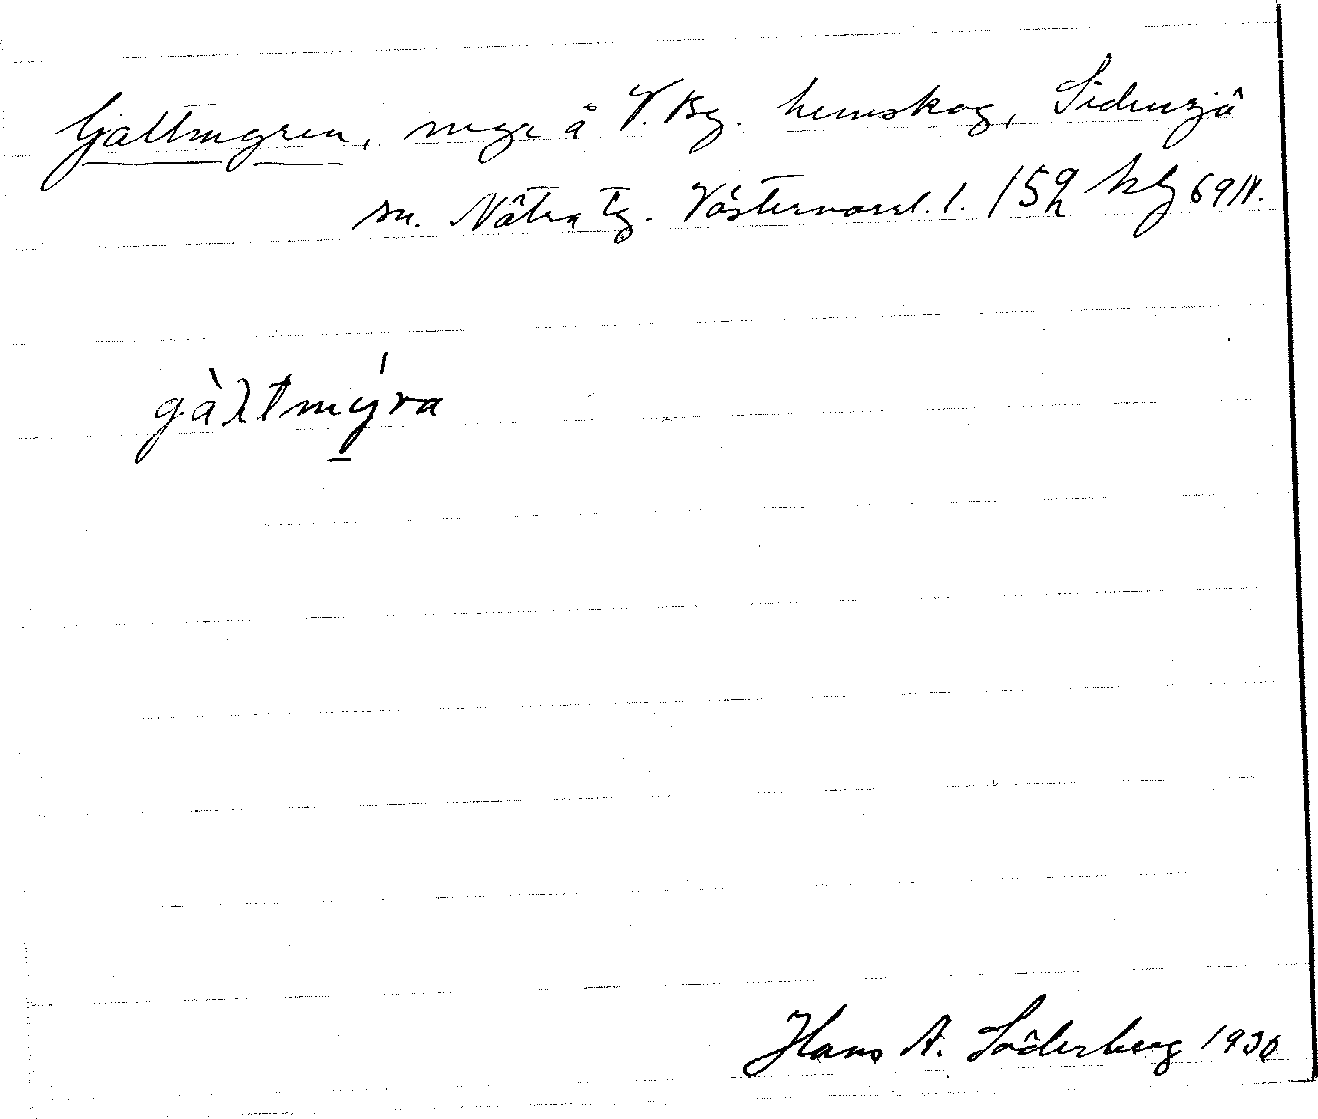 Galtmyren, myr å V. Bg. hemskog, Sidensjö
sn. Nätra tg. Västernorrl. l. 152 kg 69 IV.
gàltmýra
Hans A. Söderberg 1930